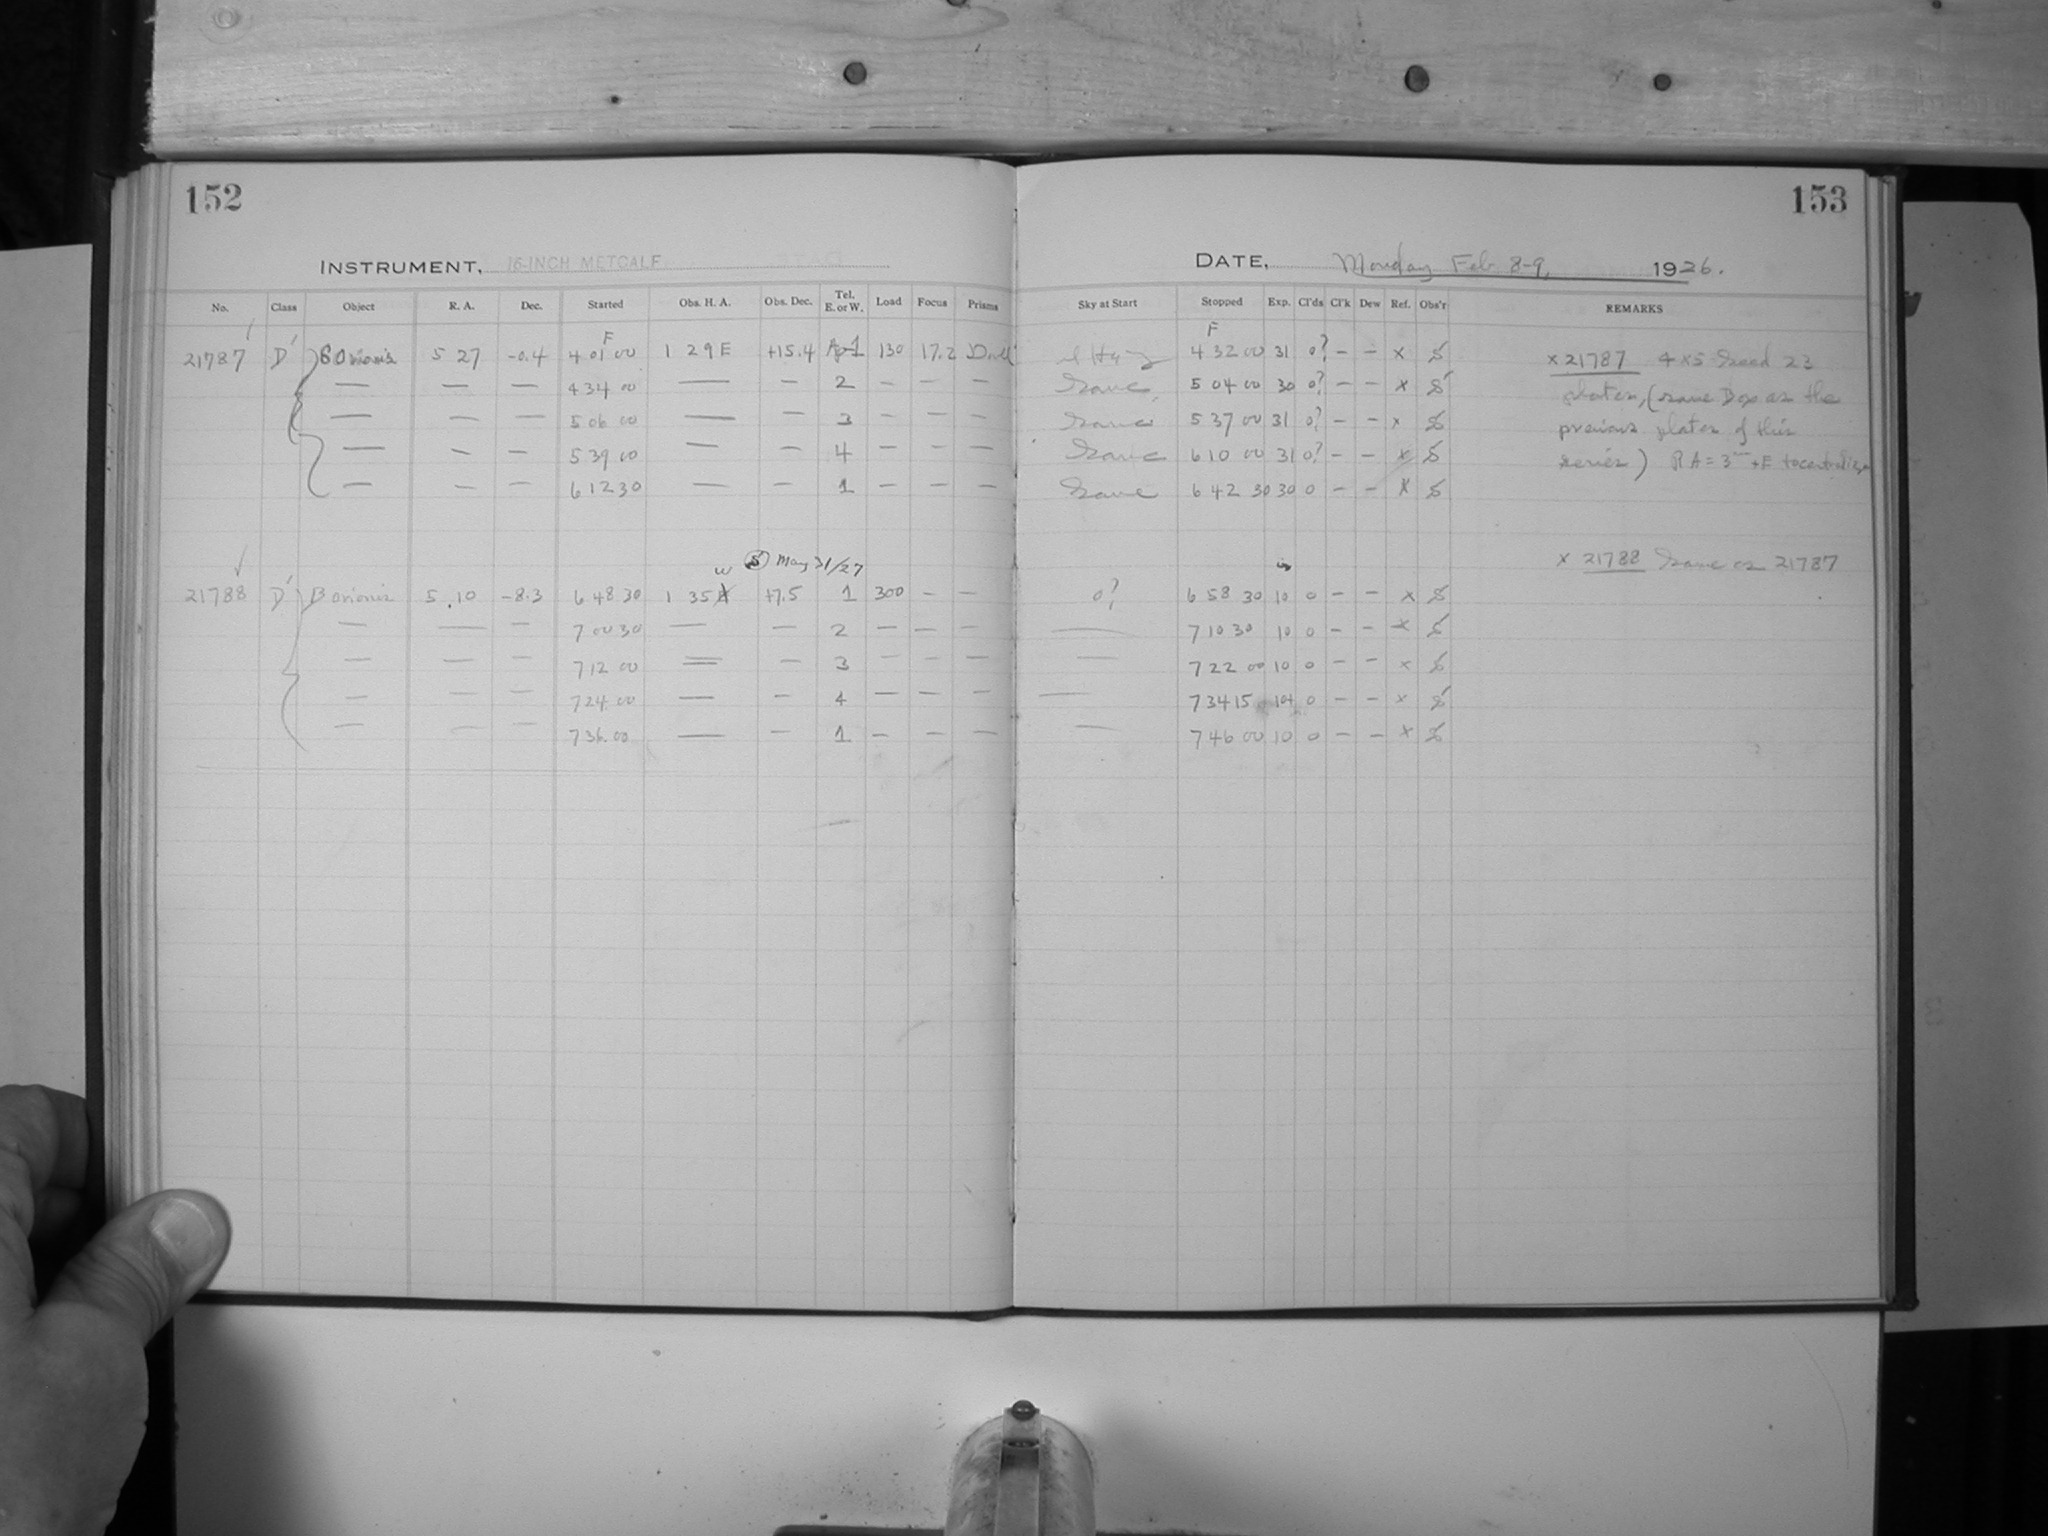 152
153
INSTRUMENT, 16-INCH METCALF
DATE, Monday Feb. 8-9, 1926.
No. Class Object R. A. Dec. Started Obs. H. A. Obs. Dec. Tel. E. or W. Load Focus Prisms Sky at Start Stopped Exp. Cl'ds Cl'k Dew Ref. Obs'r REMARKS
F F
21787 D' Orionis 5 27 -0.4 4 01 00 1 29 E +15.4 1 130 17.2 4 32 00 31 0? — — x S x 21787 4 x 5 Seed 23
— — — 4 34 00 — — 2 — — — Same 5 04 00 30 0? — — x S plates, (same Dop as the
— — — 5 06 00 — — 3 — — — Same 5 37 00 31 0? — — x S previous plates of this
— — — 5 39 00 — — 4 — — — Same 6 10 00 31 0? — — x S series) RA = 3m + E to centralize
— — — 6 12 30 — — 1 — — — Same 6 42 30 30 0 — — x S
W S May 31/27
x 21788 Same as 21787
21788 D' B Orionis 5 10 -8.3 6 48 30 1 35 +7.5 1 300 — — 0? 6 58 30 10 0 — — x S
— — — 7 00 30 — — 2 — — — — 7 10 30 10 0 — — x S
— — — 7 12 00 — — 3 — — — — 7 22 00 10 0 — — x S
— — — 7 24 00 — — 4 — — — — 7 34 15 10+ 0 — — x S
— — — 7 36 00 — — 1 — — — — 7 46 00 10 0 — — x S